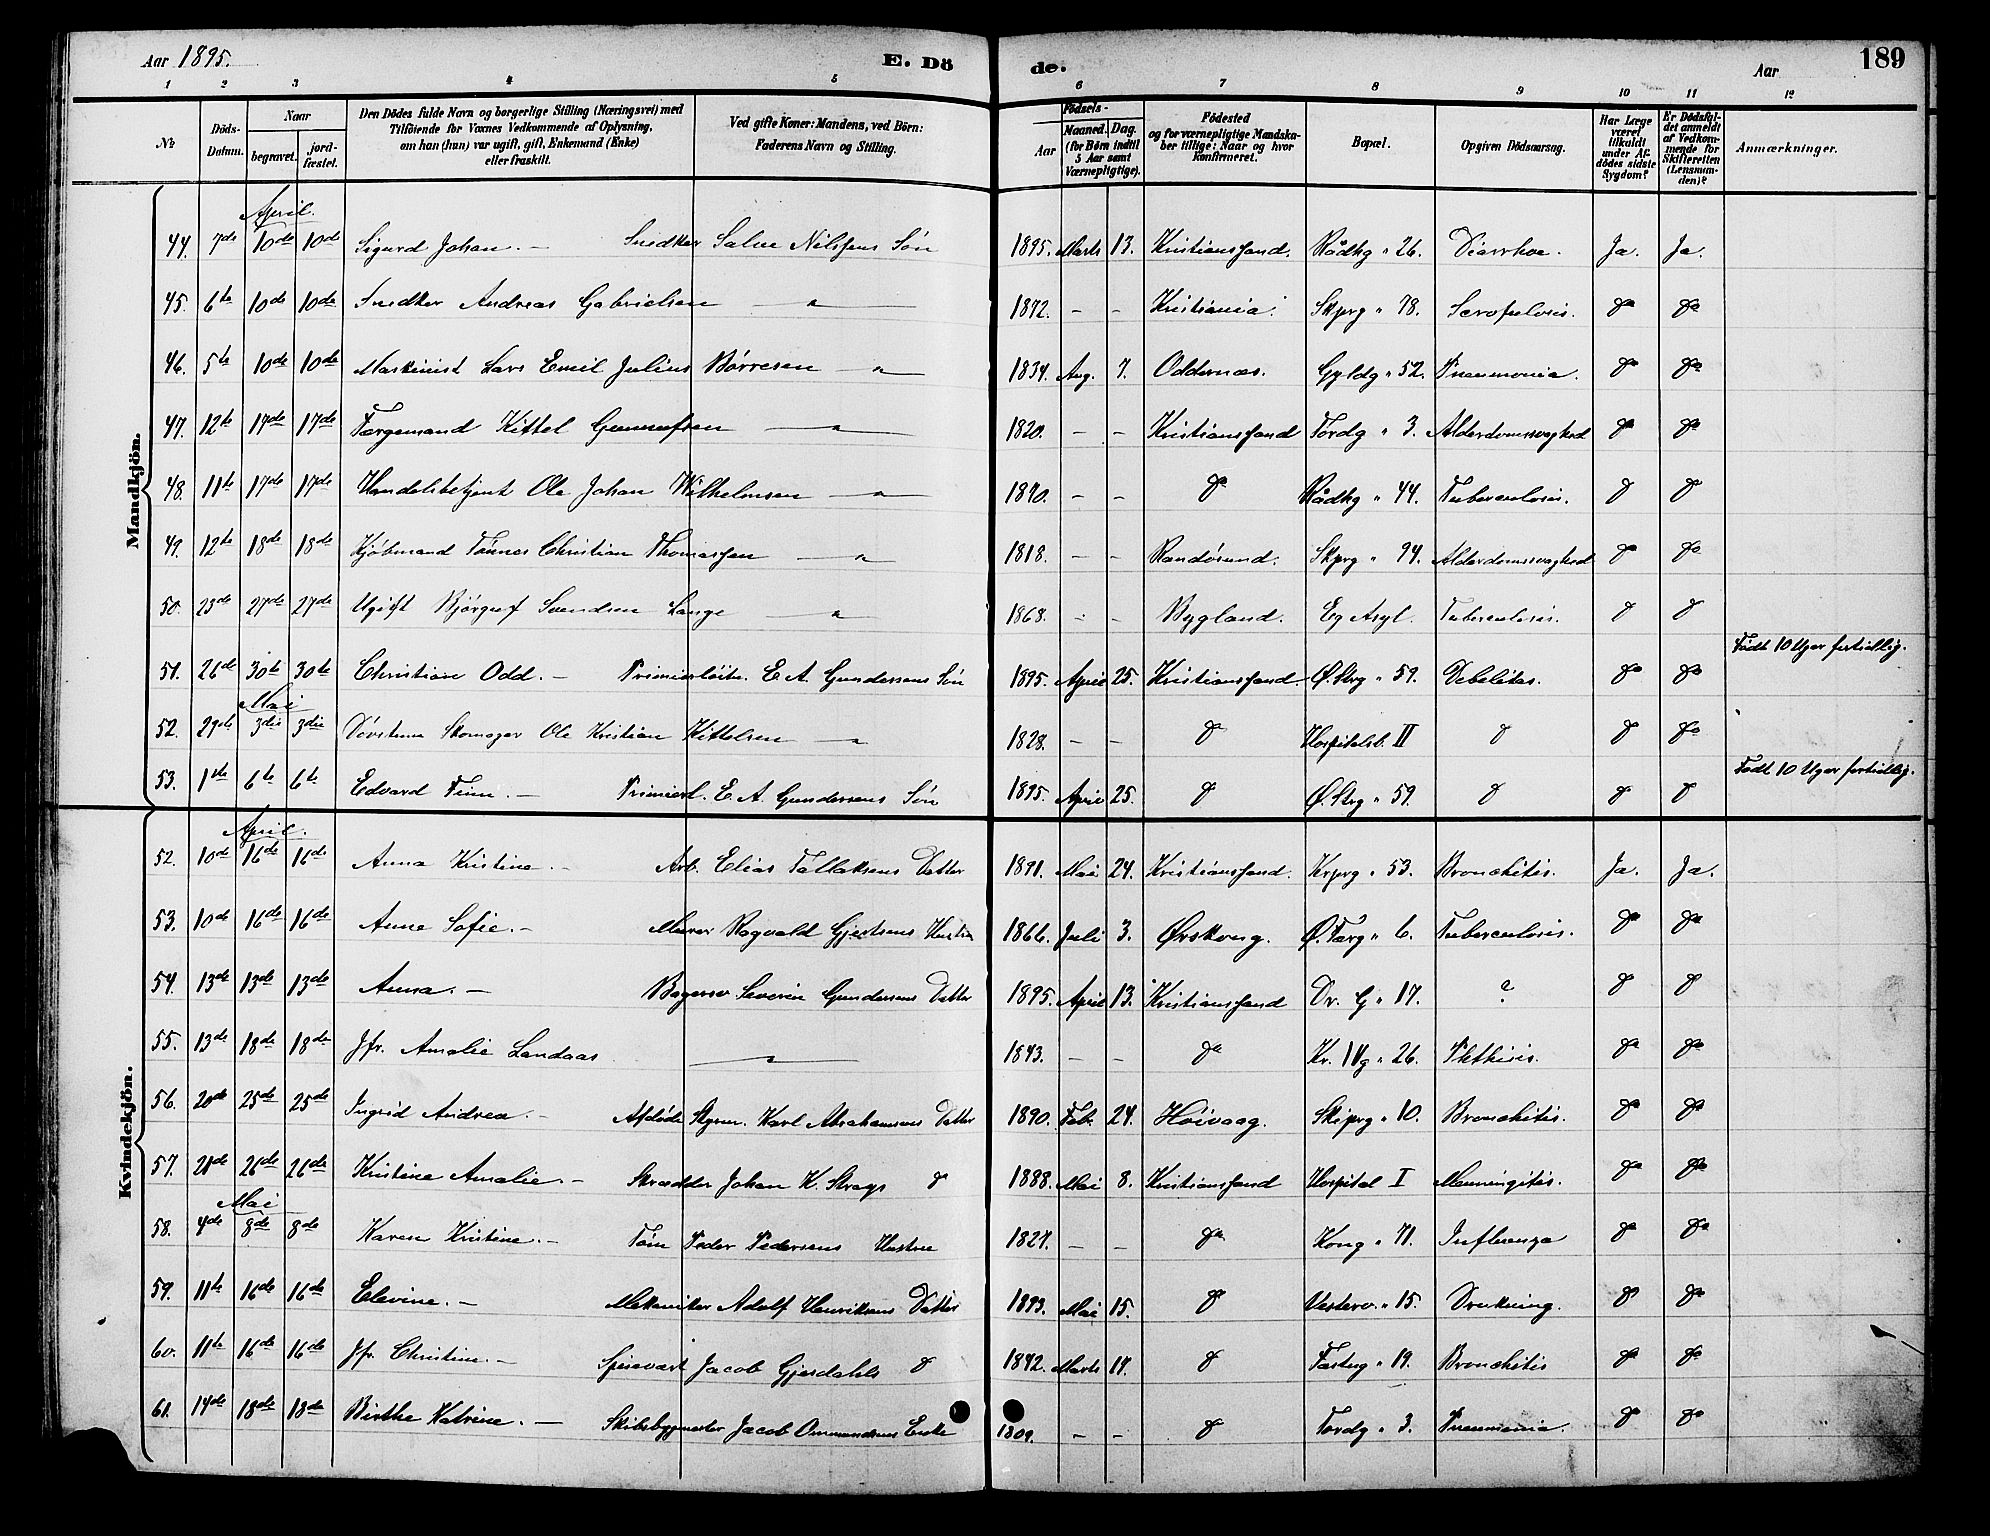 Aar 1895. E. Dö de. Aar 189
1 2 3 4 5 6 7 8 9 10 11 12
№ Döds-Datum. Naar begravet. jordfæstet. Den Dödes fulde Navn og borgerlige Stilling (Næringsvei) med Tilföiende for Voxnes Vedkommende af Oplysning, om han (hun) var ugift, gift, Enkemand (Enke) eller fraskilt. Ved gifte Koner: Mandens, ved Börn: Faderens Navn og Stilling. Födsels- Aar Maaned. Dag. (for Börn indtil 5 Aar samt Værnepligtige). Födested og for værnepligtige Mandskaber tillige: Naar og hvor konfirmeret. Bopæl. Opgiven Dödsaarsag. Har Læge været tilkaldt under Afdödes sidste Sygdom? Er Dödsfaldet anmeldt af Vedkommende for Skifteretten (Lensmanden)? Anmærkninger.
Mandkjön.
April.
44. 7de 10de 10de Sigurd Johan. – Snedker Salve Nilsens Søn 1895. Marts 13. Kristianssand. Rådhg " 26. Diarrhoe. Ja. Ja.
45. 6te 10de 10de Snedker Andreas Gabrielsen — " — 1872. – – Kristiania. Skprg " 78. Scrofulosis. do do
46. 5te 10de 10de Maskinist Lars Emil Julius Børresen — " — 1834. Aug. 7. Oddernæs. Gyldg " 52. Pneumonia. do do
47. 12te 17de 17de Færgemand Kittel Gunnufsen — " — 1820. – – Kristianssand Tordg " 3. Alderdomssvaghed do do
48. 11te 17de 17de Handelsbetjent Ole Johan Wilhelmsen — " — 1870. – – do Rådhg " 44. Tuberculosis. do do
49. 12te 18de 18de Kjøbmand Tønnes Christian Thomassen — " — 1818. – – Randøsund. Skprg " 94. Alderdomssvaghed do do
50. 23de 27de 27de Ugift Bjørguf Svendsen Lange — " — 1868. – – Bygland. Eg Asyl. Tuberculosis. do do
51. 26de 30te 30te Christian Odd. – Primierløitn. E. A. Gundersens Søn 1895. April 25. Kristianssand. Ø. Strg " 59. Debilitas. do do Født 10 Uger fortidlig.
Mai
52. 29de 3die 3die Døvstum Skomager Ole Kristian Kittelsen — " 1828. – – do Hospitalsb. II do do do
53. 1ste 6te 6te Edvard Finn. – Primierl. E. A. Gundersens Søn 1895. April 25. do Ø. Strg " 59. do do do Født 10 Uger fortidlig.
Kvindekjön.
April.
52. 10de 16de 16de Anna Kristine. – Arb. Elias Tallaksens Datter 1891. Mai 24. Kristianssand. Krprg " 53. Bronchitis. Ja. Ja.
53. 10de 16de 16de Anne Sofie. – Murer Ragvald Gjertsens Hustru 1866. Juli 3. Ørskoug. Ø. Færg " 6. Tuberculosis. do do
54. 13de 13de 13de Anna. – Bagersv Severin Gundersens Datter 1895. April 13. Kristianssand Dr. G " 17. ? do do
55. 13de 18de 18de Jfr. Amalie Landaas — " — 1843. – – do Kr. IVg " 26. Phthisis. do do
56. 20de 25de 25de Ingrid Andrea. – Afdøde Styrm. Karl Abrahamsens Datter 1890. Feb. 24. Høivaag. Skiprg " 10. Bronchitis. do do
57. 21de 26de 26de Kristine Amalie. – Skrædder Johan K. Strays do 1888. Mai 8. Kristianssand Hospital I Menningitis. do do
Mai
58. 4de 8de 8de Karen Kristine. – Tøm Peder Pedersens Hustru 1827. – – do Kong " 71. Influenza do do
59. 11te 16de 16de Elevine. – Mekaniker Adolf Henriksens Datter 1893. Mai 15. do Vesterv. " 15. Drukning. do do
60. 11te 16de 16de Jfr. Christine. – Speisevært Jacob Gjesdahls do 1842. Marts 14. do Fæstng " 19. Bronchitis do do
61. 14de 18de 18de Birthe Katrine. – Skibsbygmester Jacob Ommundsens Enke 1809. – – do Tordg " 3. Pneumonia. do do